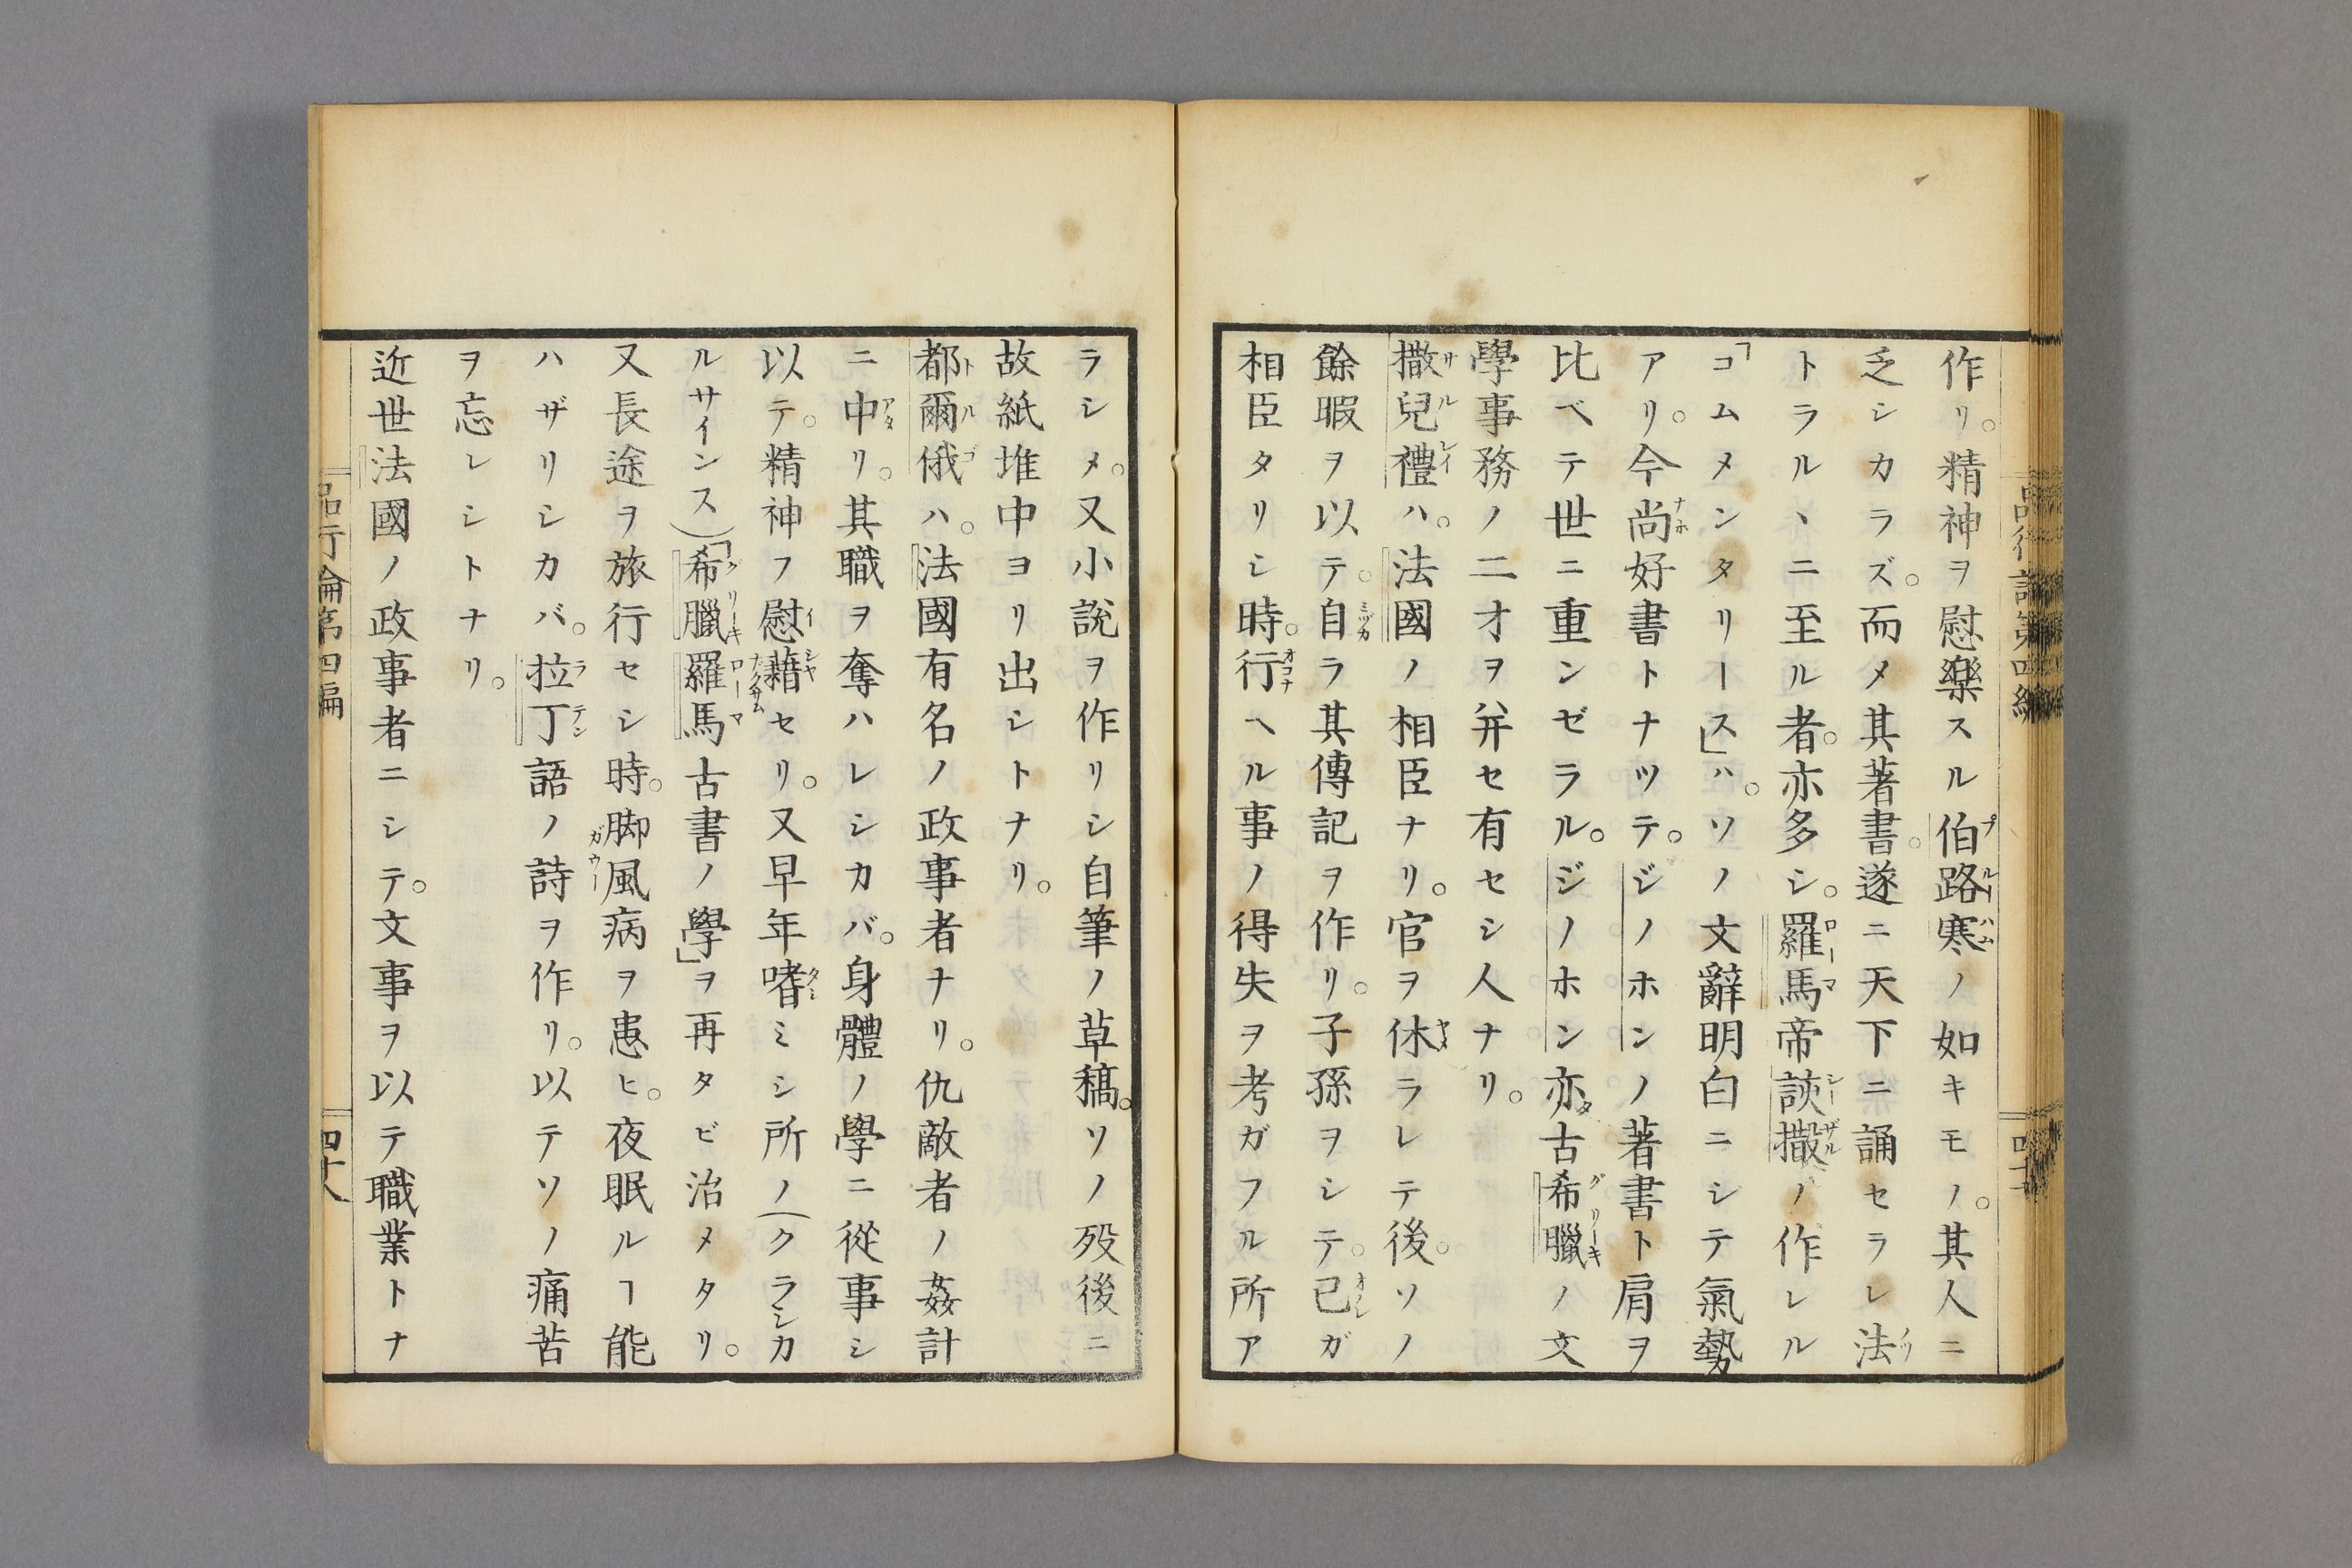 作リ。精神ヲ慰樂スル伯路寒ノ如キモノ。其人ニ
乏シカラズ。而メ其著書。遂ニ天下ニ誦セラレ法
トラルヽニ至ル者。亦多シ。羅馬帝該撒ノ作レル
「コムメンタリース」ハ。ソノ文辭明白ニシテ氣勢
アリ。今尚好書トナツテ。ジノホンノ著書ト肩ヲ
比ベテ世ニ重ンゼラル。ジノホン亦古希臘ノ文
學事務ノ二才ヲ并セ有セシ人ナリ。
撒兒禮ハ。法國ノ相臣ナリ。官ヲ休ラレテ後。ソノ
餘暇ヲ以テ。自ラ其傳記ヲ作リ。子孫ヲシテ。己ガ
相臣タリシ時。行ヘル事ノ得失ヲ考ガフル所ア
ラシメ。又小説ヲ作リシ自筆ノ草稿。ソノ歿後ニ
故紙堆中ヨリ出シトナリ。
都爾俄ハ。法國有名ノ政事者ナリ。仇敵者ノ姦計
ニ中リ。其職ヲ奪ハレシカバ。身體ノ學ニ從事シ
以テ。精神フ慰藉セリ。又早年嗜ミシ所ノ(クラシカ
ルサインス)「希臘羅馬古書ノ學」ヲ再タビ治メタリ。
又長途ヲ旅行セシ時。脚風病ヲ患ヒ。夜眠ルヿ能
ハザリシカバ。拉丁語ノ詩ヲ作リ。以テソノ痛苦
ヲ忘レシトナリ。
近世法國ノ政事者ニシテ。文事ヲ以テ職業トナ
品行論第四編
四十八